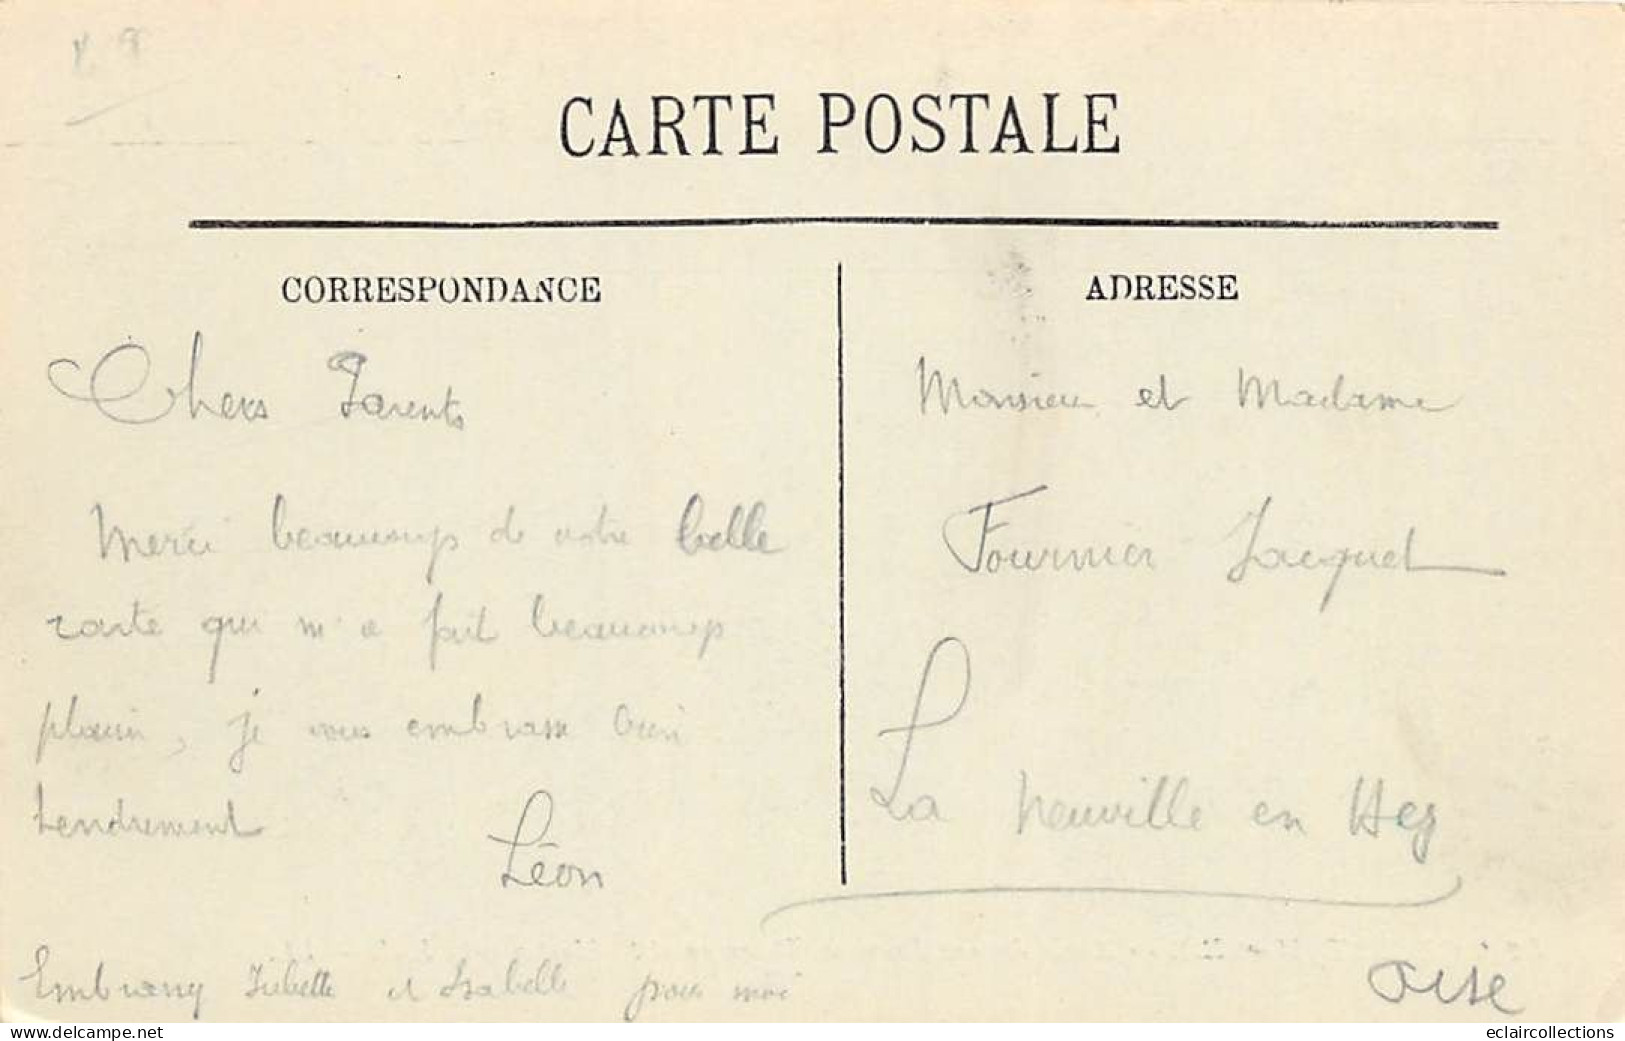 CARTE POSTALE
CORRESPONDANCE
Chers Parents
Merci beaucoup de votre belle
carte qui m'a fait beaucoup
plaisir, je vous embrasse bien
tendrement
Léon
Embrassez Juliette et Isabelle pour moi
ADRESSE
Monsieur et Madame
Fournier Jacquet
La Neuville en Hez
Oise
eclaircollections